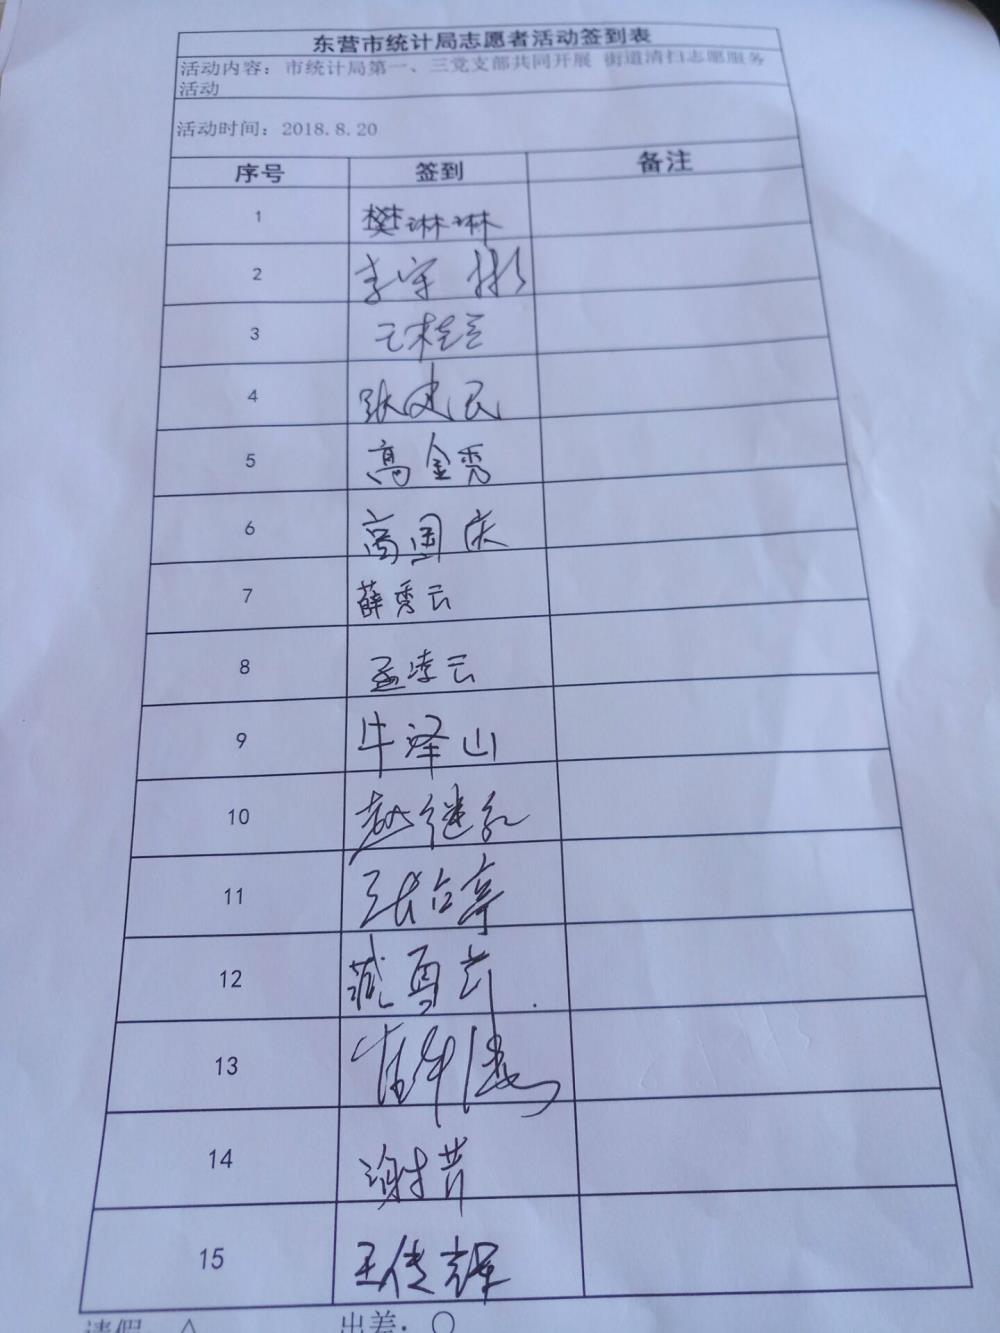 东营市统计局志愿者活动签到表
活动内容：市统计局第一、三党支部共同开展 街道清扫志愿服务
活动
活动时间：2018.8.20
序号 签到 备注
1 樊琳琳
2 李守彬
3 王桂兰
4 张建民
5 高金秀
6 高国庆
7 薛秀云
8 孟凌云
9 牛泽山
10 赵继红
11
12
13
14 谢芳
15 王传辉
请假 △ 出差：○